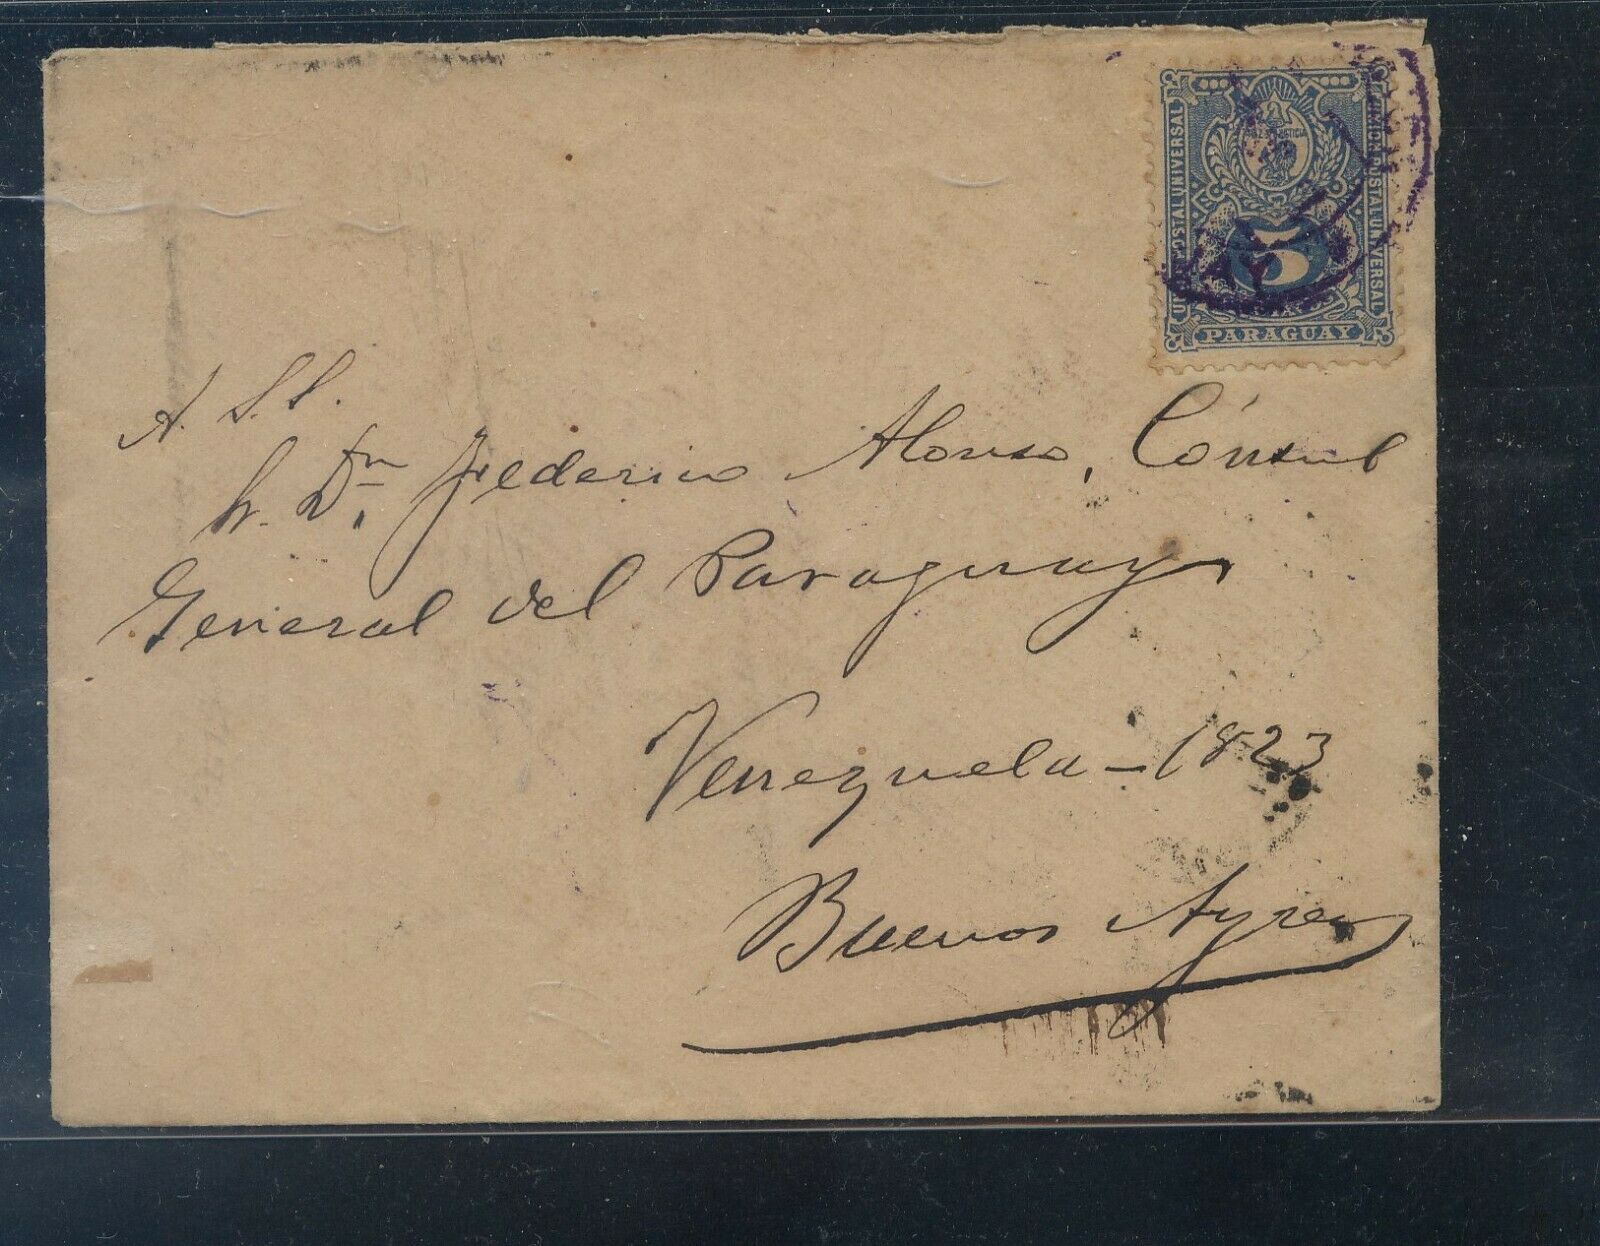 UNION POSTAL UNIVERSAL
UNION POSTAL UNIVERSAL
PAZ Y JUSTICIA
5
PARAGUAY
A. S.S.
Sr. Dr. Dn Federico Alonso, Cónsul
General del Paraguay
Venezuela - 1823
Buenos Ayres